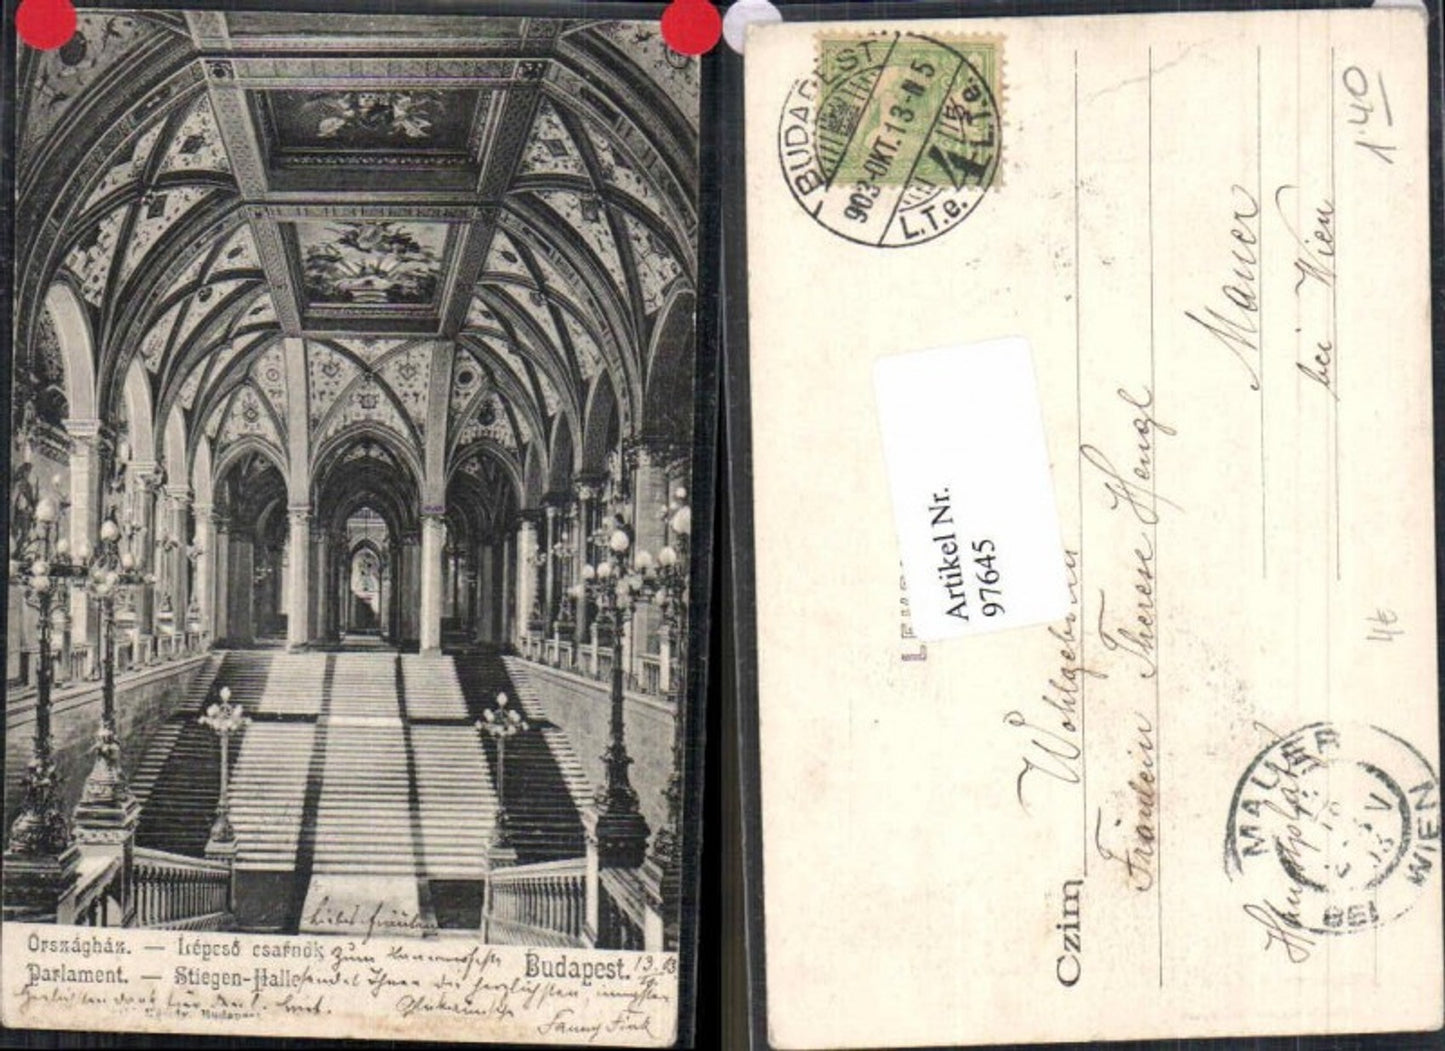 Országház. — Lépcső csarnok
Parlament. — Stiegen-Halle
Budapest.
13. 03
Liebes Fräulein
Zum
sendet Ihnen die herzlichsten, innigsten
Glückwünsche
Herzlichsten dank für
Fanny Fink
BUDAPEST
903 OKT. 13
4
L.T.e.
1·40
Artikel Nr.
97645
Czim
Wohlgeboren
Fräulein Therese Hengl
Mauer
bei Wien
Hauptplatz
MAUER
WIEN